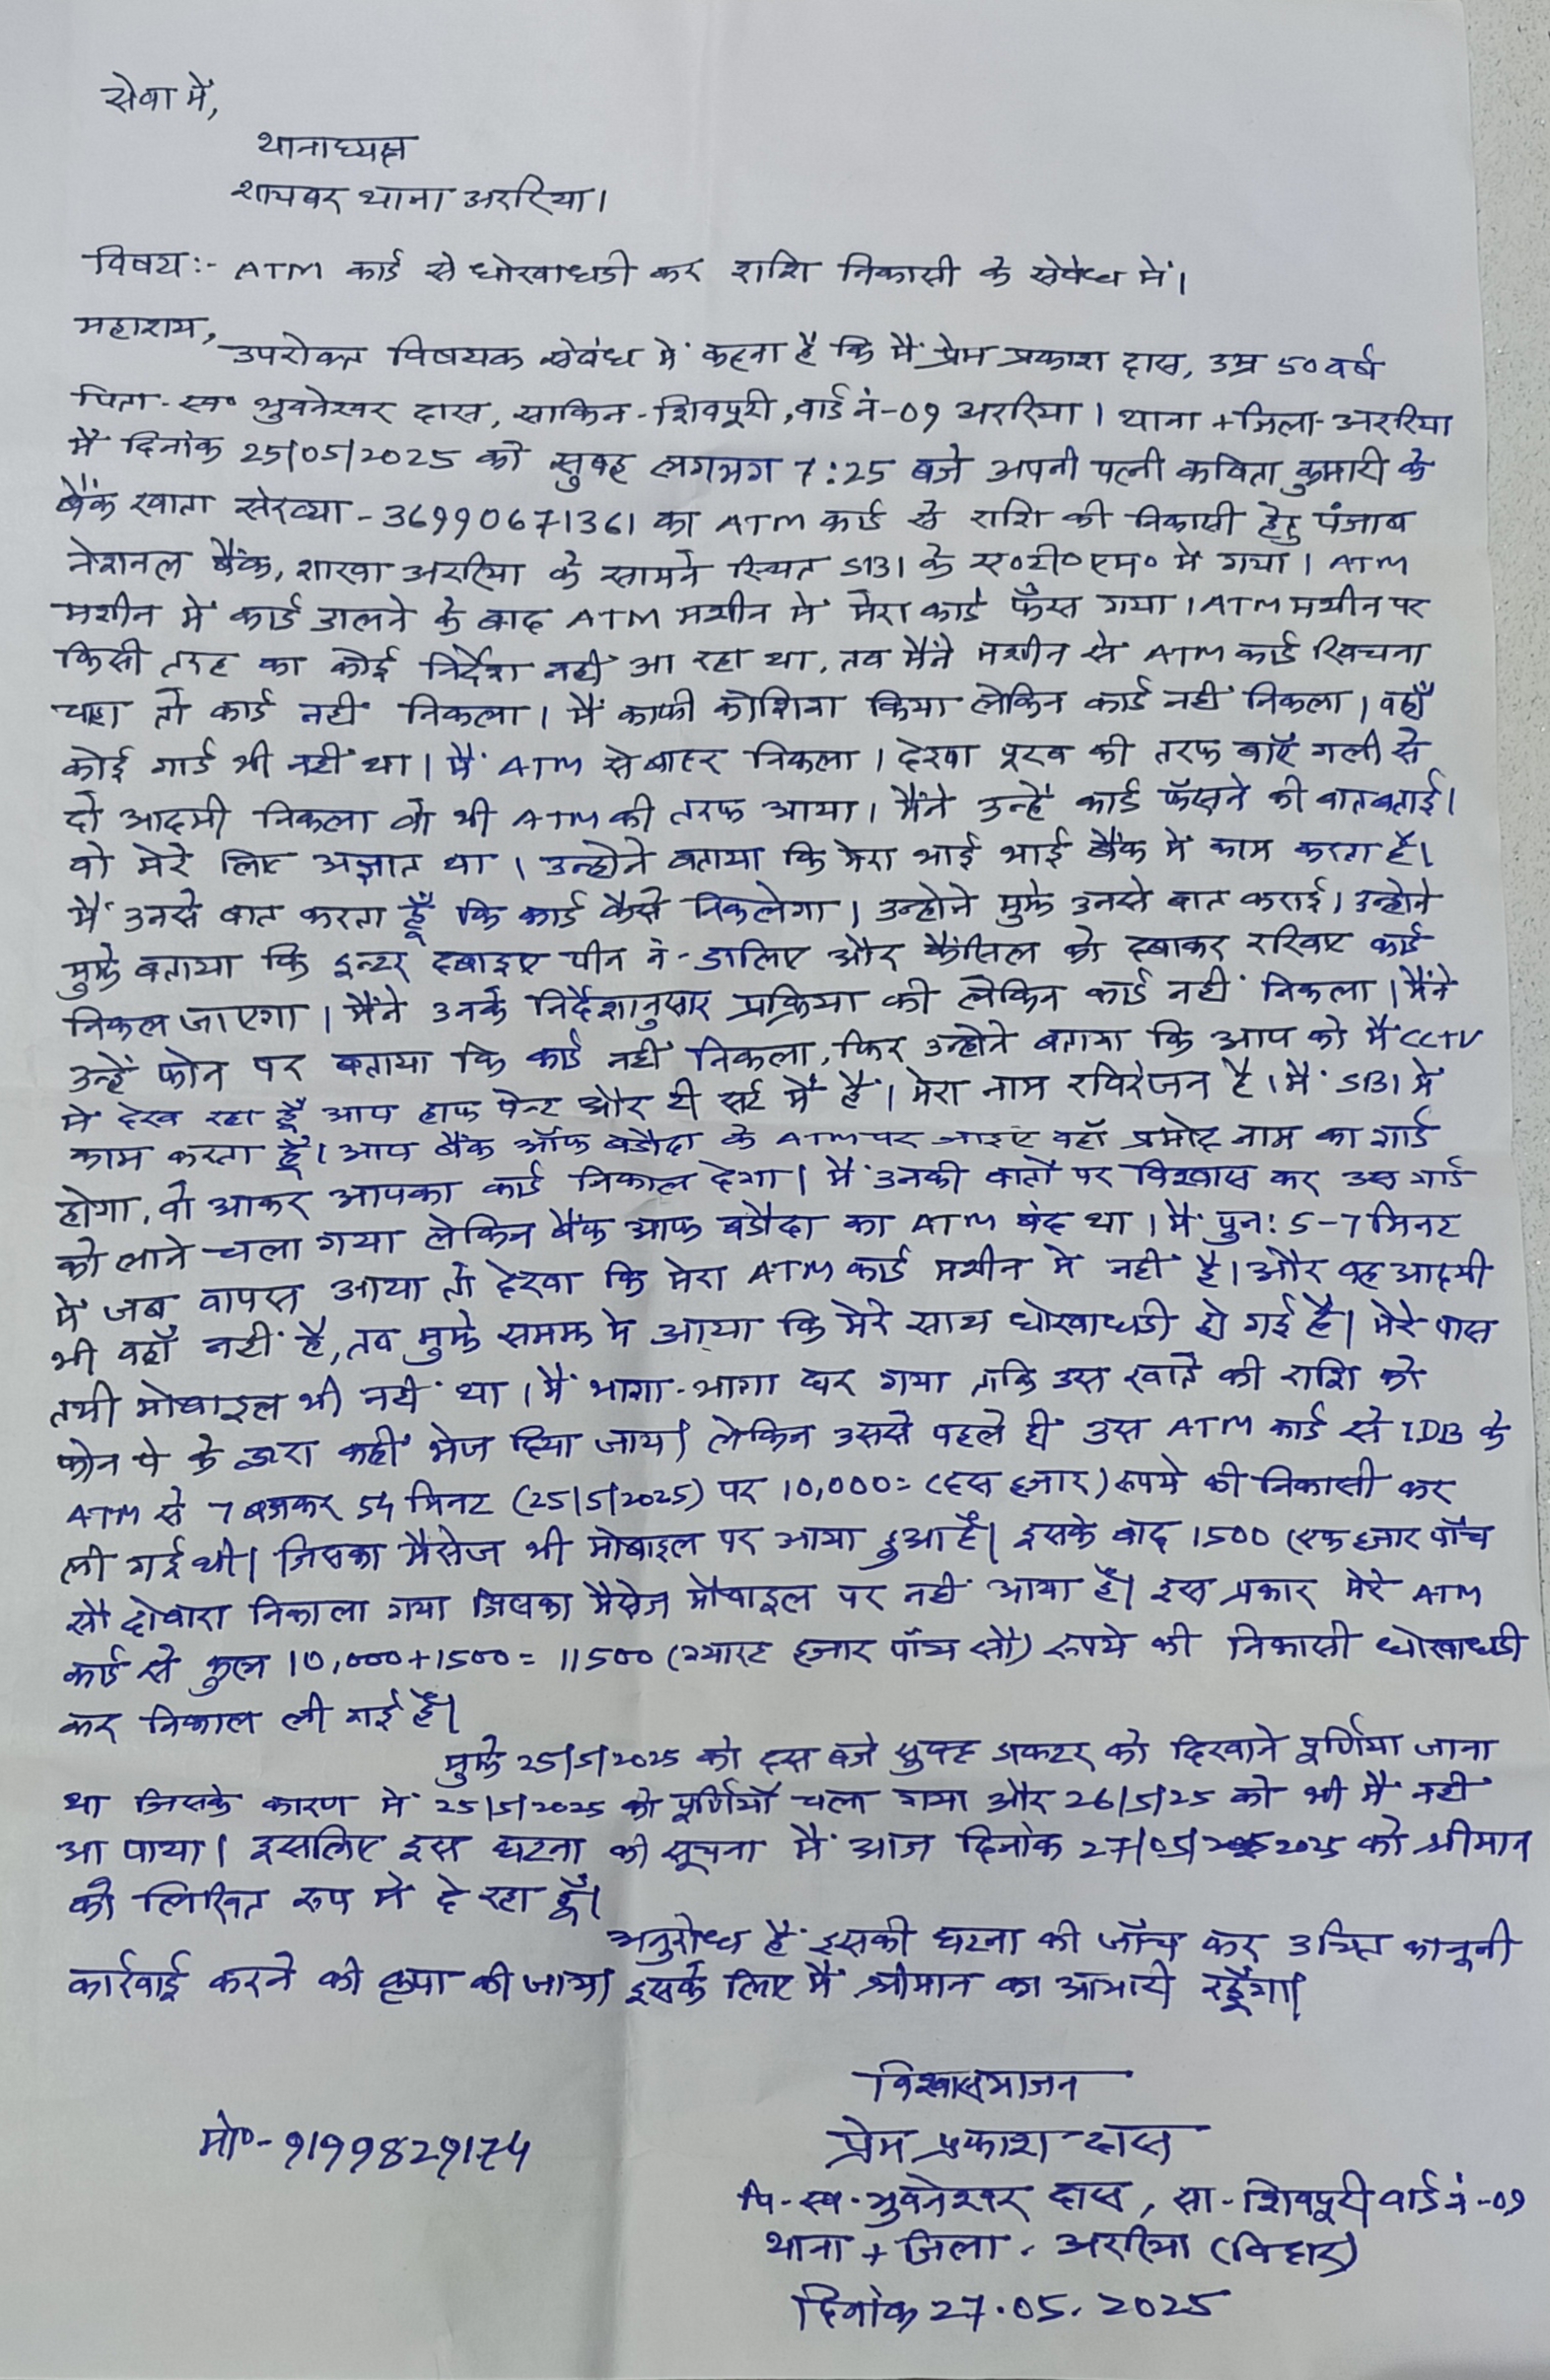 सेवा में,
थानाध्यक्ष
सायबर थाना अररिया।
विषय:- ATM कार्ड से धोखाधडी कर राशि निकासी के संबंध में।
महाशय,
उपरोक्त विषयक संबंध में कहना है कि मैं प्रेम प्रकाश दास, उम्र 50 वर्ष
पिता-स्व० भुवनेश्वर दास, साकिन-शिवपूरी, वार्ड नं-09 अररिया। थाना + जिला-अररिया
मैं दिनांक 25/05/2025 को सुबह लगभग 7:25 बजे अपनी पत्नी कविता कुमारी के
बैंक खाता संख्या-36990671361 का ATM कार्ड से राशि की निकासी हेतु पंजाब
नेशनल बैंक, शाखा अररिया के सामने स्थित SBI के ए०टी०एम० में गया। ATM
मशीन में कार्ड डालने के बाद ATM मशीन में मेरा कार्ड फँस गया। ATM मशीन पर
किसी तरह का कोई निर्देश नहीं आ रहा था, तब मैंने मशीन से ATM कार्ड खिचना
चाहा तो कार्ड नहीं निकला। मैं काफी कोशिश किया लेकिन कार्ड नहीं निकला। वहाँ
कोई गार्ड भी नहीं था। मैं ATM से बाहर निकला। देखा पूरब की तरफ बाएँ गली से
दो आदमी निकला वो भी ATM की तरफ आया। मैंने उन्हें कार्ड फँसने की बात बताई।
वो मेरे लिए अज्ञात था। उन्होने बताया कि मेरा भाई भाई बैंक में काम करता है।
मैं उनसे बात करता हूँ कि कार्ड कैसे निकलेगा। उन्होने मुझे उनसे बात कराई। उन्होने
मुझे बताया कि इन्टर दबाइए पीन नं-डालिए और कैंसिल को दबाकर रखिए कार्ड
निकल जाएगा। मैंने उनके निर्देशानुसार प्रक्रिया की लेकिन कार्ड नहीं निकला। मैंने
उन्हें फोन पर बताया कि कार्ड नहीं निकला, फिर उन्होने बताया कि आप को मैं CCTV
में देख रहा हूँ आप हाफ पेन्ट और टी सर्ट में हैं। मेरा नाम रविरंजन है। मैं SBI में
काम करता हूँ। आप बैंक ऑफ बडौदा के ATM पर जाइए वहाँ प्रमोद नाम का गार्ड
होगा, वो आकर आपका कार्ड निकाल देगा। मैं उनकी बातों पर विश्वास कर उस गार्ड
को लाने चला गया लेकिन बैंक आफ बडौदा का ATM बंद था। मैं पुन: 5-7 मिनट
में जब वापस आया तो देखा कि मेरा ATM कार्ड मशीन में नहीं है। और वह आदमी
भी वहाँ नहीं है, तब मुझे समझ में आया कि मेरे साथ धोखाधडी हो गई है। मेरे पास
तभी मोबाइल भी नहीं था। मैं भागा-भागा घर गया ताकि उस खाते की राशि को
फोन पे के द्वारा कहीं भेज दिया जाय। लेकिन उससे पहले हीं उस ATM कार्ड से IDB के
ATM से 7 बजकर 54 मिनट (25/5/2025) पर 10,000= (दस हजार) रूपये की निकासी कर
ली गई थी। जिसका मैसेज भी मोबाइल पर आया हुआ है। इसके बाद 1500 (एक हजार पाँच
सौ दोबारा निकाला गया जिसका मैसेज मोबाइल पर नहीं आया है। इस प्रकार मेरे ATM
कार्ड से कुल 10,000+1500= 11500 (ग्यारह हजार पाँच सौ) रूपये की निकासी धोखाधडी
कर निकाल ली गई है।
मुझे 25/5/2025 को दस बजे सुबह डाक्टर को दिखाने पूर्णिया जाना
था जिसके कारण में 25/5/2025 को पूर्णियाँ चला गया और 26/5/25 को भी मैं नहीं
आ पाया। इसलिए इस घटना की सूचना मैं आज दिनांक 27/05/2025 को श्रीमान
को लिखित रूप में दे रहा हूँ।
अनुरोध है इसकी घटना की जाँच कर उचित कानूनी
कार्रवाई करने की कृपा की जाय। इसके लिए मैं श्रीमान का आभारी रहूँगा।
विश्वासभाजन
प्रेम प्रकाश दास
मो०-9199829174
पि-स्व.भुवनेश्वर दास, सा-शिवपूरी वार्ड नं-09
थाना + जिला - अररिया (बिहार)
दिनांक 27.05.2025